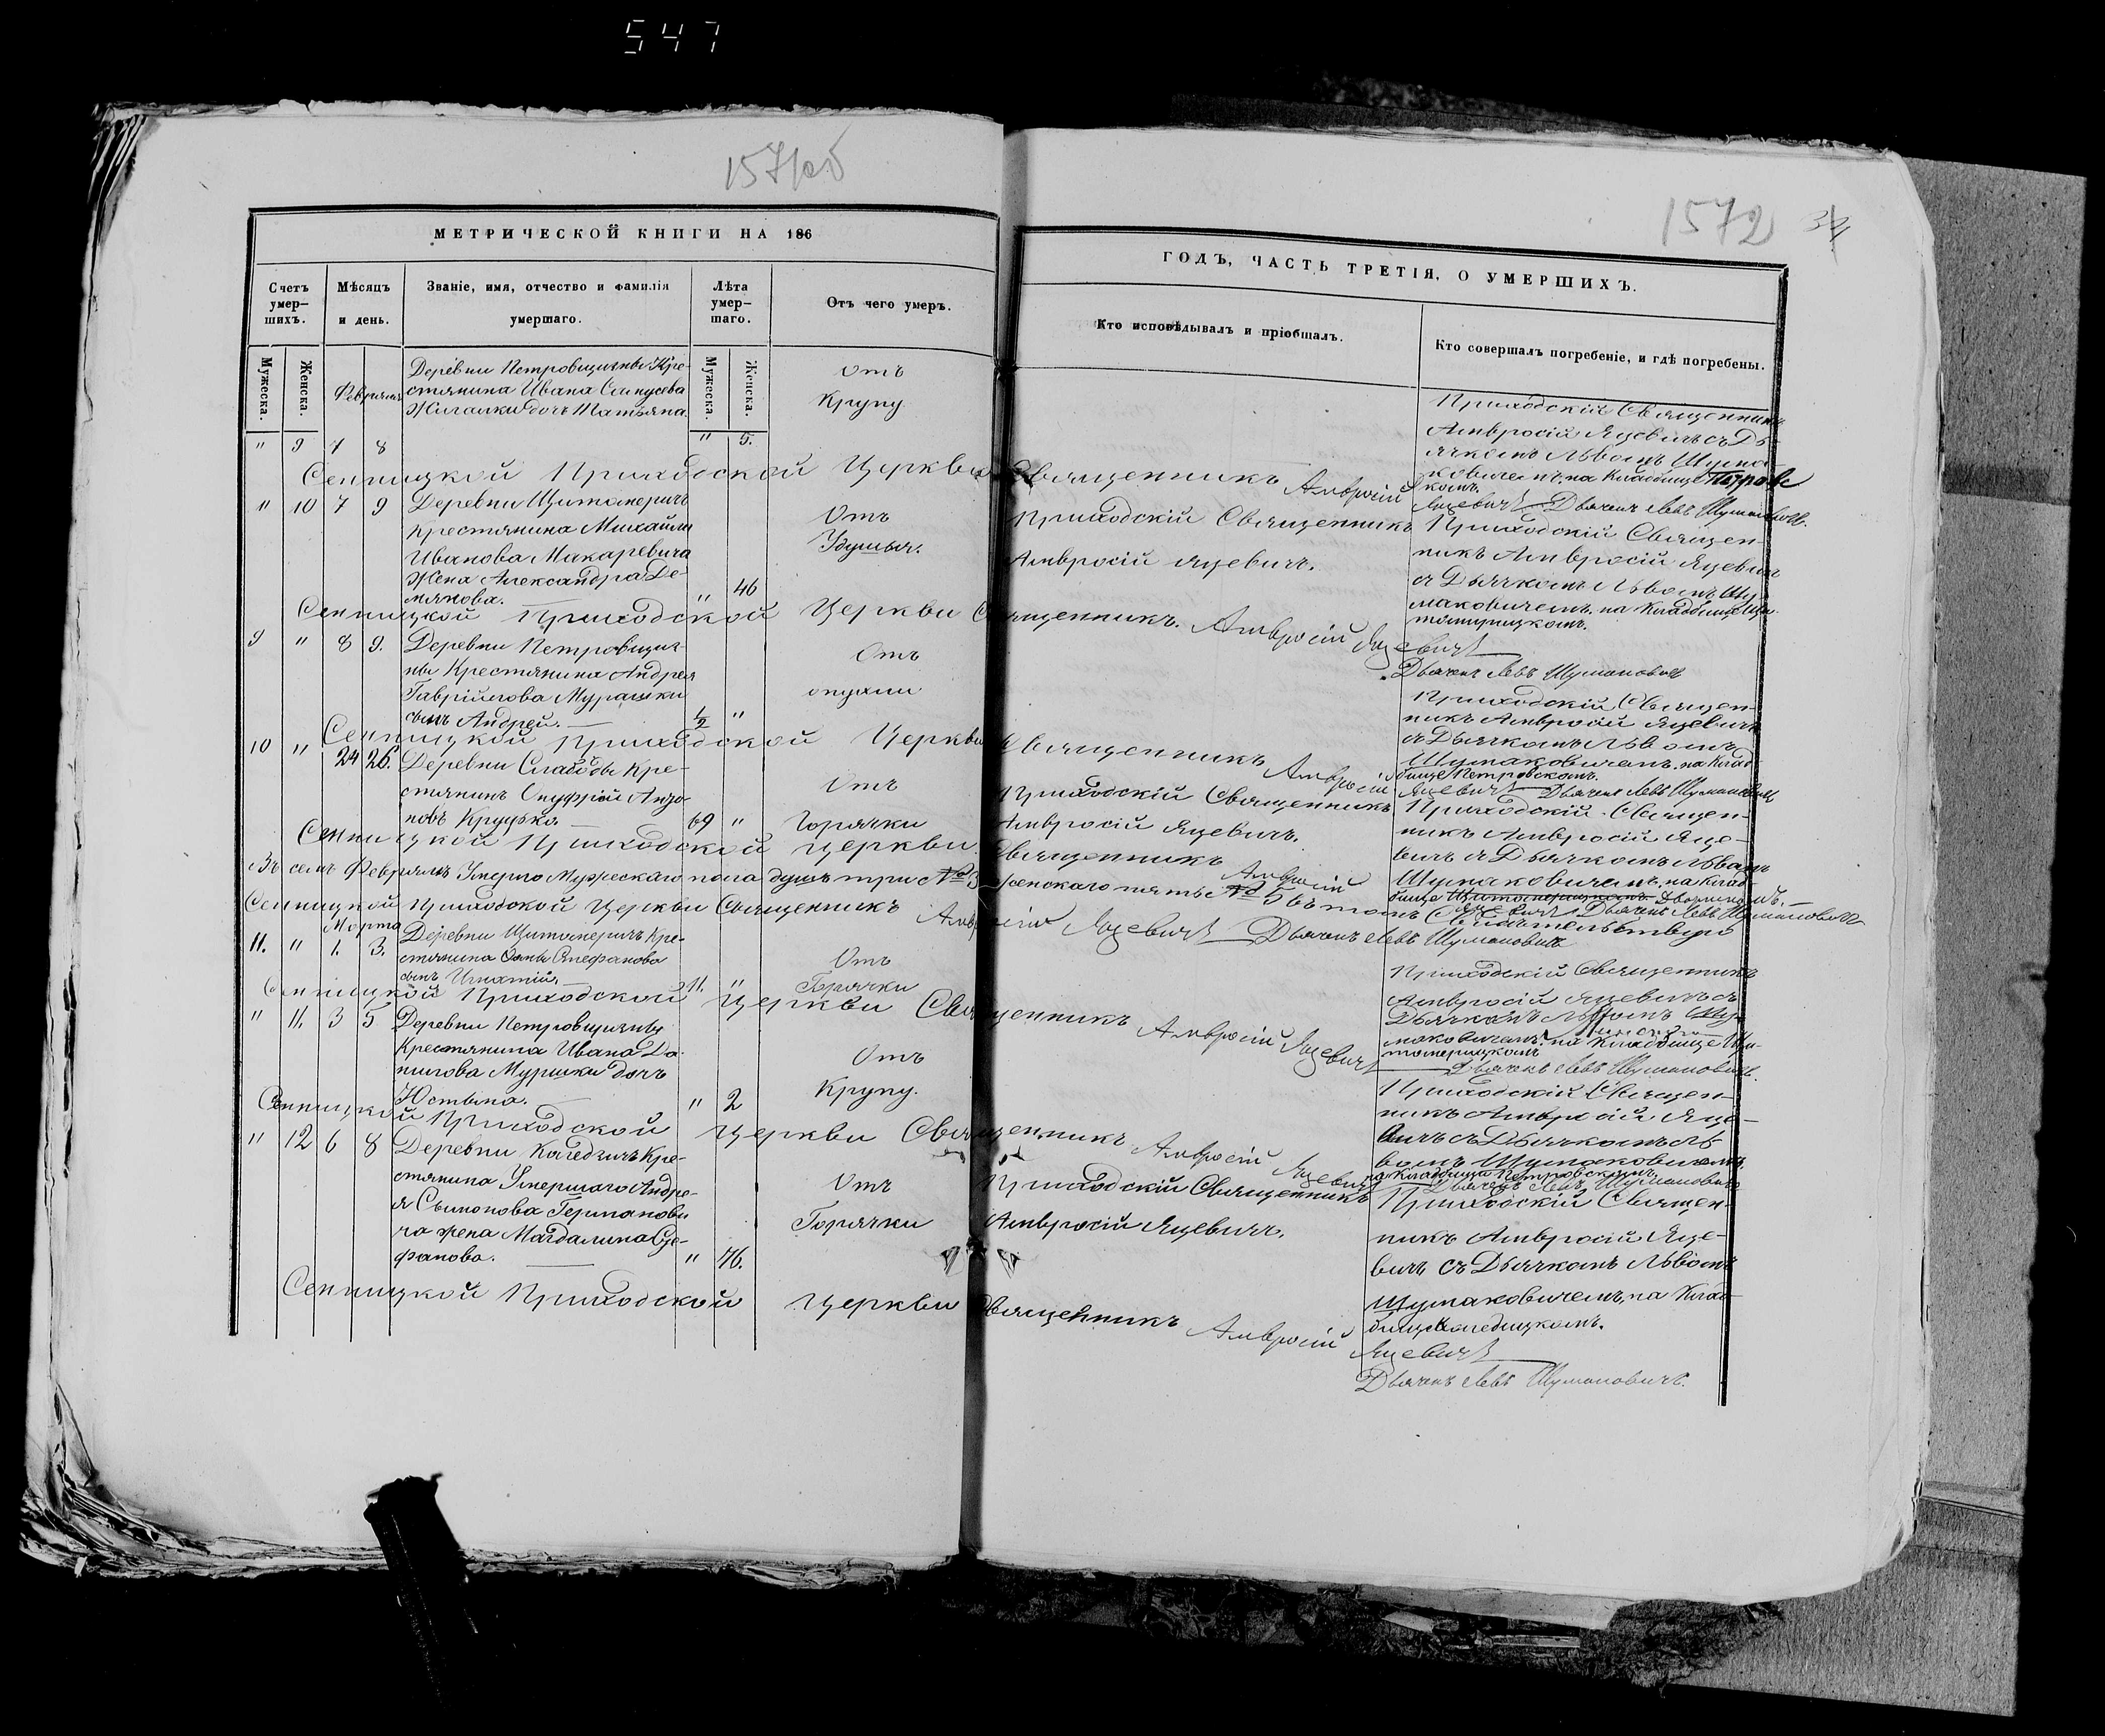 547
157/об
1572
МЕТРИЧЕСКОЙ КНИГИ НА 186
ГОДЪ, ЧАСТЬ ТРЕТІЯ, О УМЕРШИХЪ.
Счетъ умер-шихъ.
Мѣсяцъ и день.
Званіе, имя, отчество и фамилія умершаго.
Лѣта умер-шаго.
Отъ чего умеръ.
Кто исповѣдывалъ и пріобщалъ.
Кто совершалъ погребеніе, и гдѣ погребены.
Мужеска.
Женска.
Мужеска.
Женска.
Февраля
Деревни Петровщины Кре-
стянина Ивана
дочь Татьяна.
Отъ
Крупу.
" 9 7 8
" 5.
Приходскій Священникъ
Амвросій Яцевичъ съ Дь-
ячкомъ Львомъ Шума-
ковичемъ, на Кладбище Петровс
комъ.
Сенницкой Приходской Церкви Священникъ Амвросій Яцевичъ
Дьячекъ Левъ Шумаковичъ.
" 10 7 9
Деревни Щитомеричъ
Крестянина Михаила
Иванова Макаревича
Жена Александра Де-
мянова.
" 46
Отъ
Удушья.
Приходскій Священникъ
Амвросій Яцевичъ.
Приходскій Священ-
никъ Амвросій Яцевичъ
съ Дьячкомъ Львомъ Шу-
маковичемъ, на Кладбище Щи-
томирицкомъ.
Сенницкой Приходской Церкви Священникъ. Амвросій Яцевичъ
Дьячекъ Левъ Шумаковичъ
9 " 8 9.
Деревни Петровщин-
ны Крестянина Андрея
Гаврійлова Мурашки
сынъ Андрей.
1/2 "
Отъ
опухли
Приходскій Священ-
никъ Амвросій Яцевичъ
съ Дьячкомъ Львомъ
Шумаковичемъ, на Клад-
бище Петровскомъ.
Сенницкой Приходской Церкви Священникъ Амвросій Яцевичъ
Дьячекъ Левъ Шумаковичъ
10 " 24 26.
Деревни Слободы Кре-
стянинъ Онуфрій Анто-
новъ
69 "
Отъ
Горячки
Приходскій Священникъ
Амвросій Яцевичъ.
Приходскій Священ-
никъ Амвросій Яце-
вичъ съ Дьячкомъ Львомъ
Шумаковичемъ, на Клад-
бище
Сенницкой Приходской Церкви. Священникъ Амвросій Яцевичъ Дьячекъ Левъ Шумаковичъ
Въ семъ Февралѣ Умерло Мужескаго пола душъ три № 3 женскаго пять № 5 въ томъ свидѣтельствую
Сенницкой Приходской Церкви Священникъ Амвросій Яцевичъ Дьячекъ Левъ Шумаковичъ
Марта
11. " 1. 3.
Деревни Щитомеричъ Кре-
стянина
сынъ Игнатій.
11. "
Отъ
Горячки
Приходскій Священникъ
Амвросій Яцевичъ съ
Дьячкомъ Львомъ Шу-
маковичемъ, на Кладбище Щи-
томерицкомъ
Сенницкой Приходской Церкви Священникъ Амвросій Яцевичъ
Дьячекъ Левъ Шумаковичъ.
" 11. 3 5
Деревни Петровщины
Крестянина Ивана Да-
нилова Мурашки дочь
Юстына.
" 2
Отъ
Крупу.
Приходскій Священ-
никъ Амвросій Яце-
вичъ съ Дьячкомъ Ль-
вомъ Шумаковичемъ
на Кладбище Петровскомъ.
Сенницкой Приходской Церкви Священникъ Амвросій Яцевичъ
Дьячекъ Левъ Шумаковичъ
" 12 6 8
Деревни Каледичъ Кре-
стянина Умершаго Андре-
я Сымонова Германови-
ча жена Магдалина Сте-
фанова.
" 76.
Отъ
Горячки
Приходскій Священникъ
Амвросій Яцевичъ.
Приходскій Священ-
никъ Амвросій Яце-
вичъ съ Дьячкомъ Львомъ
Шумаковичемъ, на Клад-
бище Каледицкомъ.
Сенницкой Приходской Церкви Священникъ Амвросій Яцевичъ
Дьячекъ Левъ Шумаковичъ.